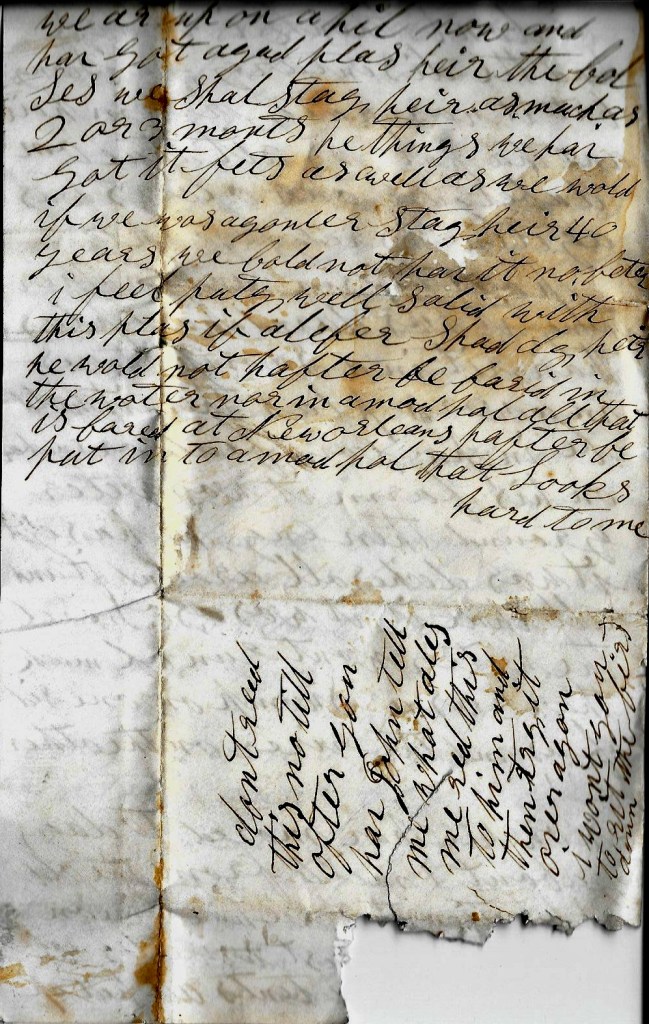 we ar up on a hil now and
har got agud plas heir the bol
ses we shal stay heir as much as
2 ar 3 monts he things we hav
got it fets as well as we wold
if we was agonter stay heir 40
years we cold not hav it no beter
i feel puty well Salid with
this plas if a lefer shad dy heir
he wold not hafter be barid in
the water nor in a mod hol all that
is bared at Neworleans hafter be
put in to a mod hol that Looks
hard to me
dont reed
this no till
ofter you
har John tell
me what des
me red this
to him and
then try it
over agon
i wont you
to all the
down